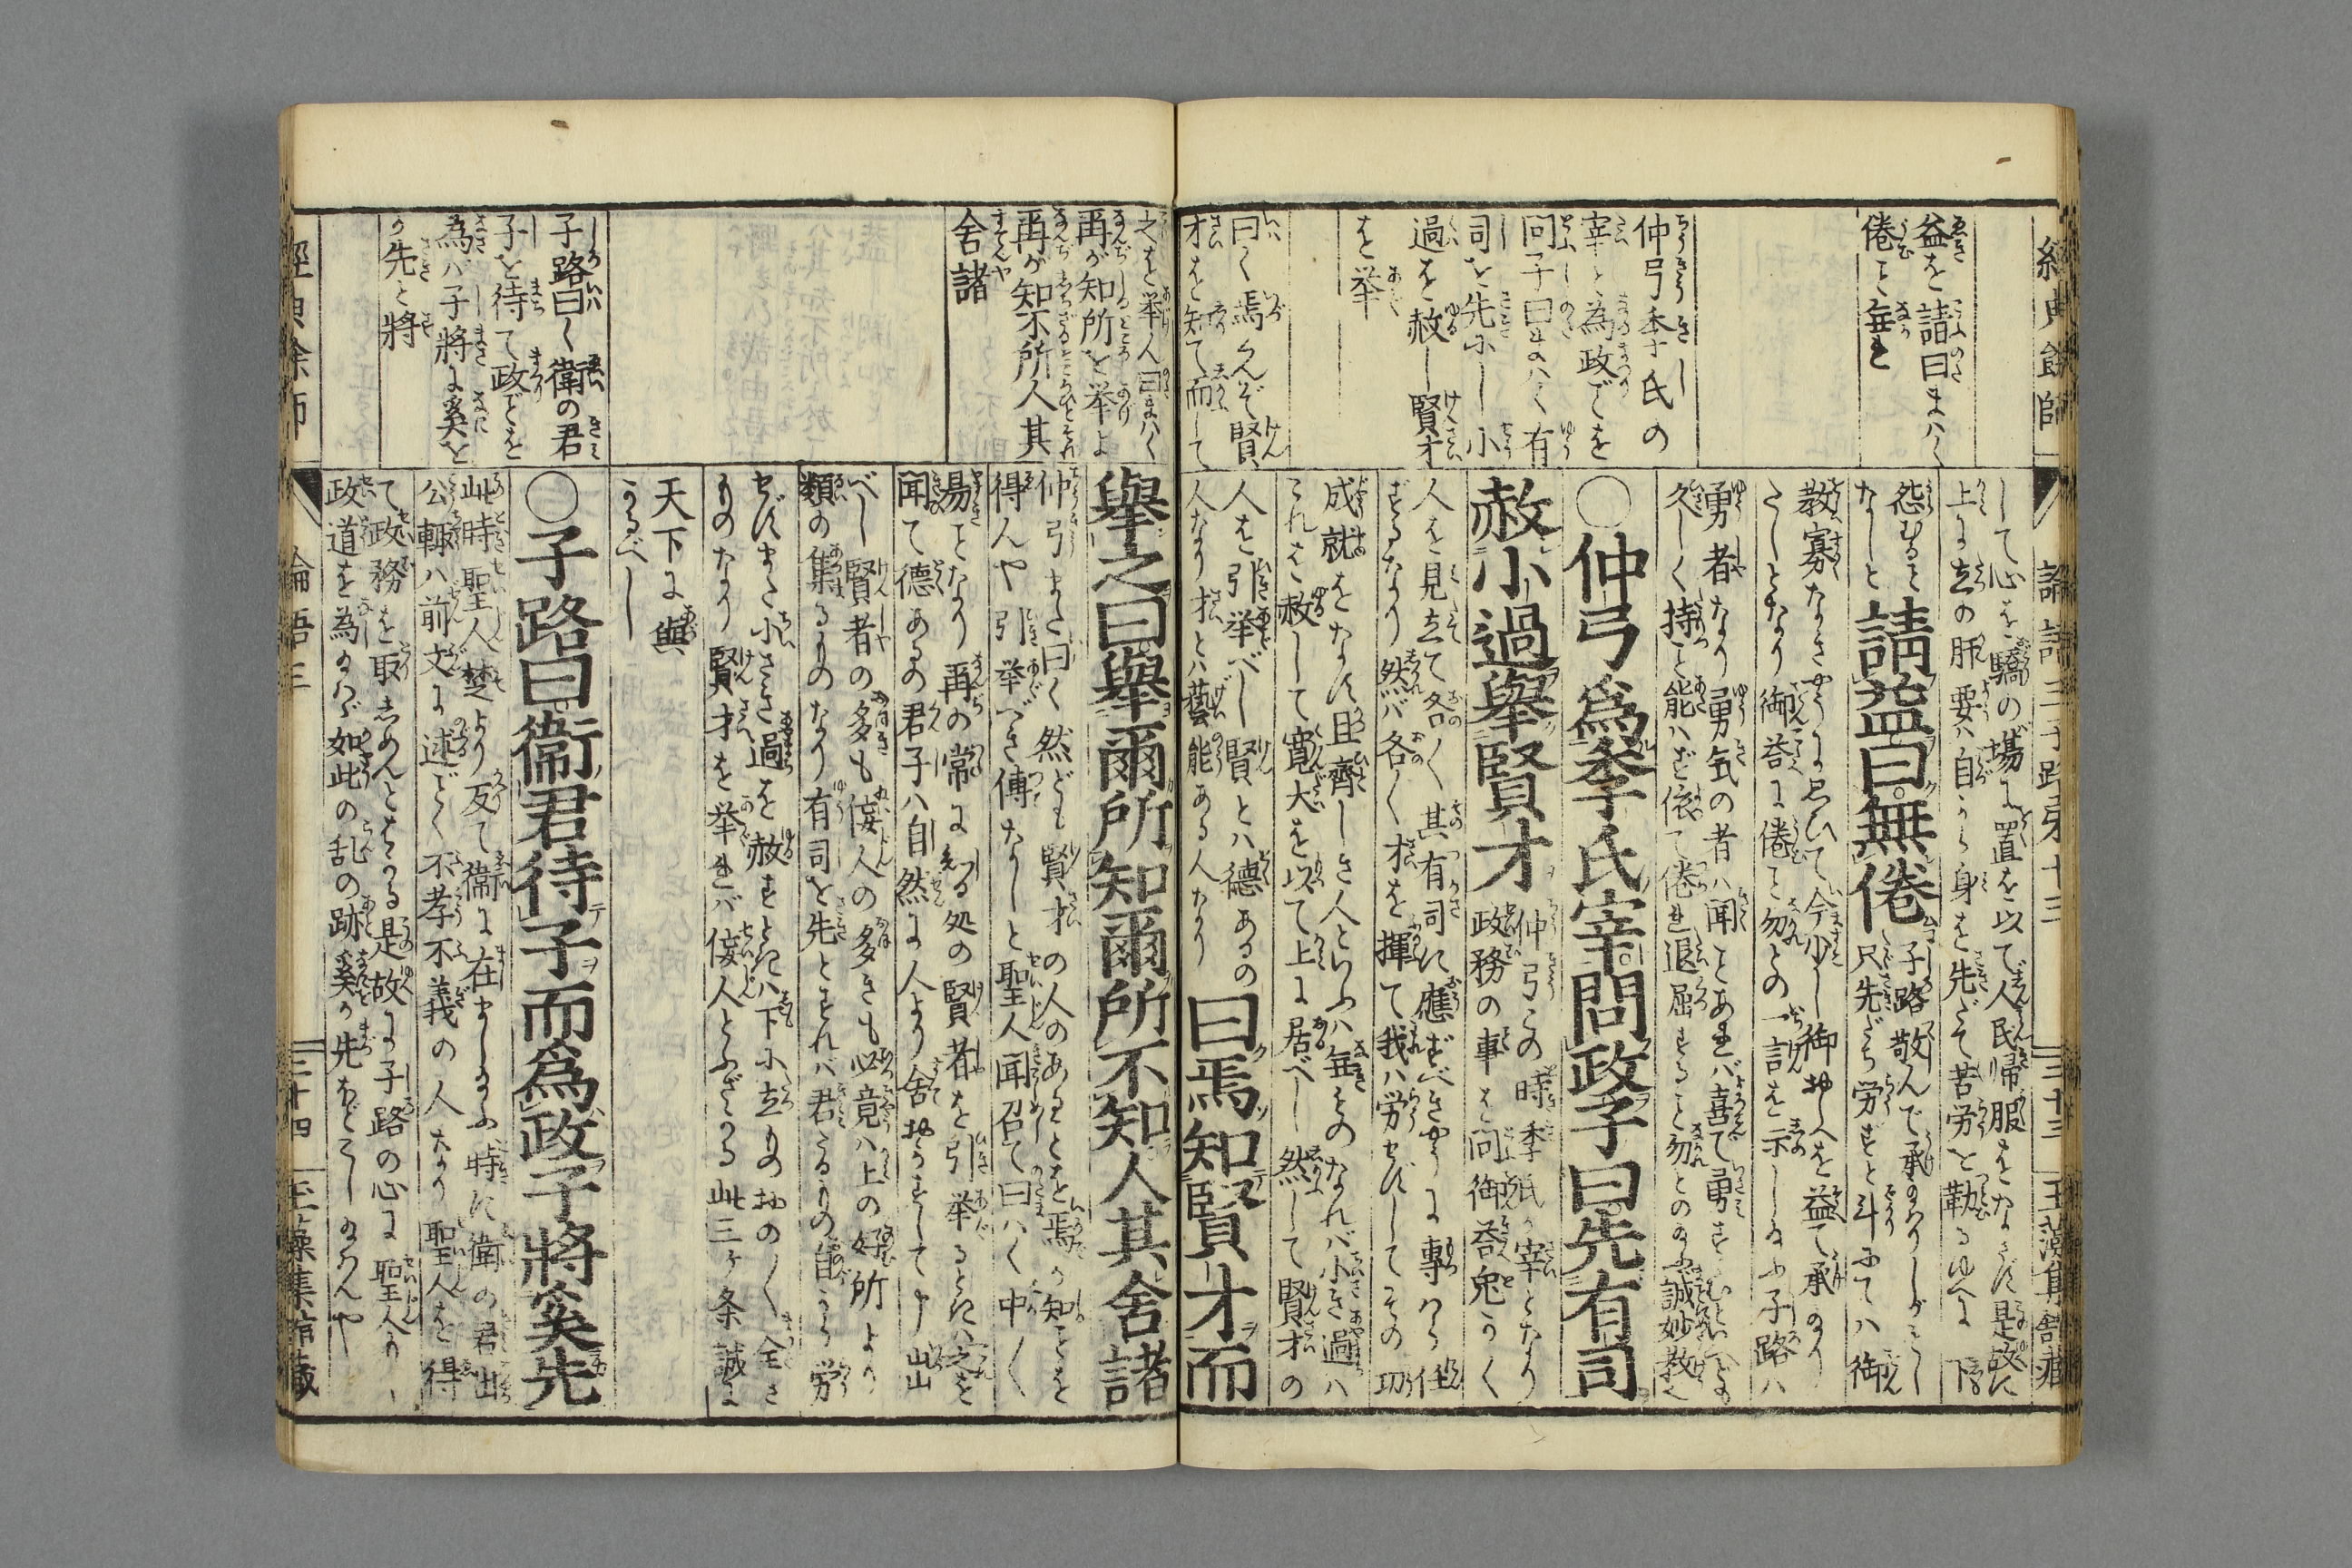 經典餘師
論語三 子路第十三
三十三
玉藻舎藏
益を請曰まハく
倦こと無き
して心を驕の場に置を以て人民帰服をなさず是故に
上に立の肝要ハ自から身を先だて苦労を勤るゆへに下
怨むること
なしと
請益曰無倦
子路敬んで承のりしがもし
只先だち労ずと斗にてハ御
教寡なきやうに思ひて今少し御おしへを益て承のり
たしとなり御答に倦こと勿との一言を示し給ふ子路ハ
勇者なり勇気の者ハ聞ことあれバ喜て勇すむといへども
久しく持こと能ハず依て倦退屈すること勿とのたまふ誠妙教也
仲弓季氏の
宰と為政ごとを
問子曰まハく有
司を先にし小
過を赦し賢才
を挙
〇仲弓爲季氏宰問政子曰先有司
赦小過舉賢才
仲弓この時季氏が宰となり
政務の事を問御答兎かく
人を見立て各々其有司に應ずべきやうに專ハら任
ずるなり然バ各々才を揮て我ハ労せずしてその功
成就をなす且齊しき人といふハ無ものなれバ小さき過ハ
これを赦して寛大を以て上に居べし然して賢才の
曰く焉くんぞ賢
才を知て而して
人を引挙べし賢とハ德あるの
人なり才とハ藝能ある人なり
曰焉知賢才而
之を挙ん曰まハく
再が知所を挙よ
再が知不所人其
舍諸
舉之曰舉爾所知爾所不知人其舍諸
仲弓また曰く然ども賢才の人のあることを焉か知ことを
得んや引挙べき傳なしと聖人聞召て曰ハく中々
易ことなり再の常に知る処の賢者を引挙るときハ之を
聞て德あるの君子ハ自然に人より舍おかずして出
べし賢者の多も侫人の多きも必竟ハ上の好所より
類の集るものなり有司を先とすれバ君たるもの自から労
せずまた小さき過を赦すときハ下に立ものおの〱全き
ものなり賢才を挙れバ侫人とふざかる此三ケ条誠に
天下に與
たるべし
子路曰く衛の君
子を待て政ごとを
為バ子將に奚を
か先と將
〇子路曰衞君待子而爲政子將奚先
此時聖人楚より反て衞に在ましたふ時に衛の君出
公輙ハ前文に述ごとく不孝不義の人なり聖人を得
て政務を取しめんとはかる是故に子路の心に聖人の
政道を為たハゞ如此の乱の跡奚か先ほどこしたハんや
經典餘師
論語三
三十四
玉藻集舘藏